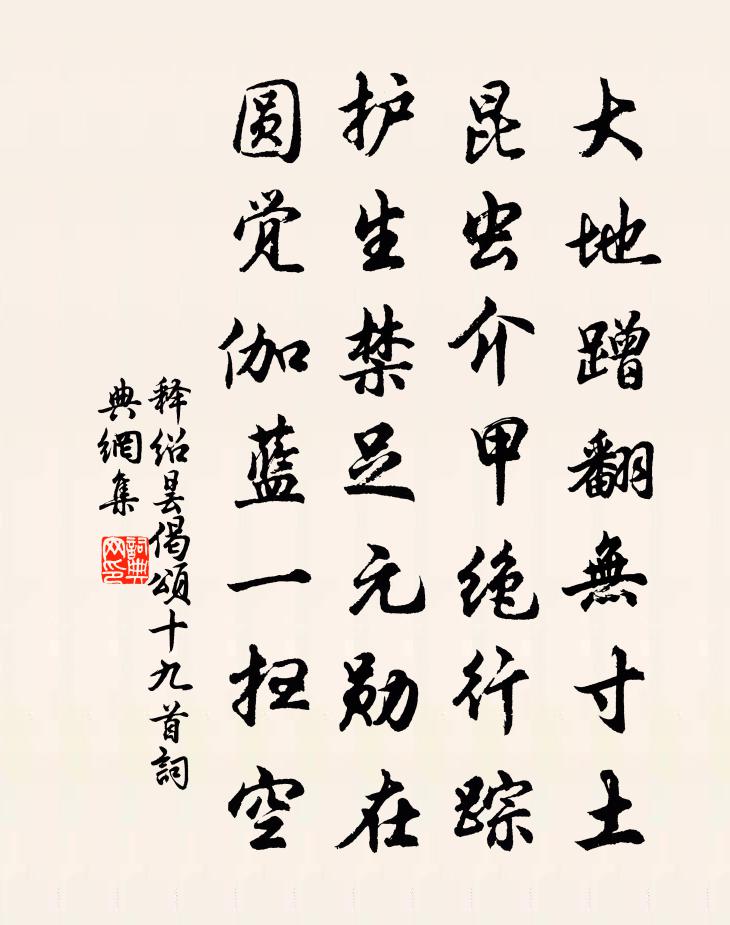 大地蹭翻無寸土
昆虫介甲绝行踪
护生禁足元勋在
圆觉伽藍一扫空
释绍昙偈頌十九首詞
典網集
詞典
网印